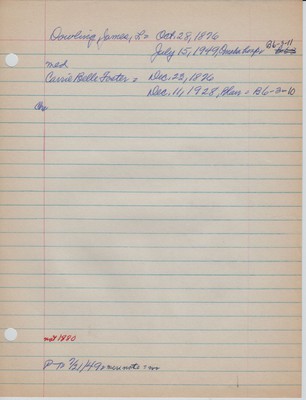 Dowling, James, L = Oct. 28, 1876
July 15, 1949, Omaha B6-2-11
med
Carrie Belle Foster = Dec. 22, 1876
Dec. 11, 1928, B6-2-10
1880
P-T 7/21/49